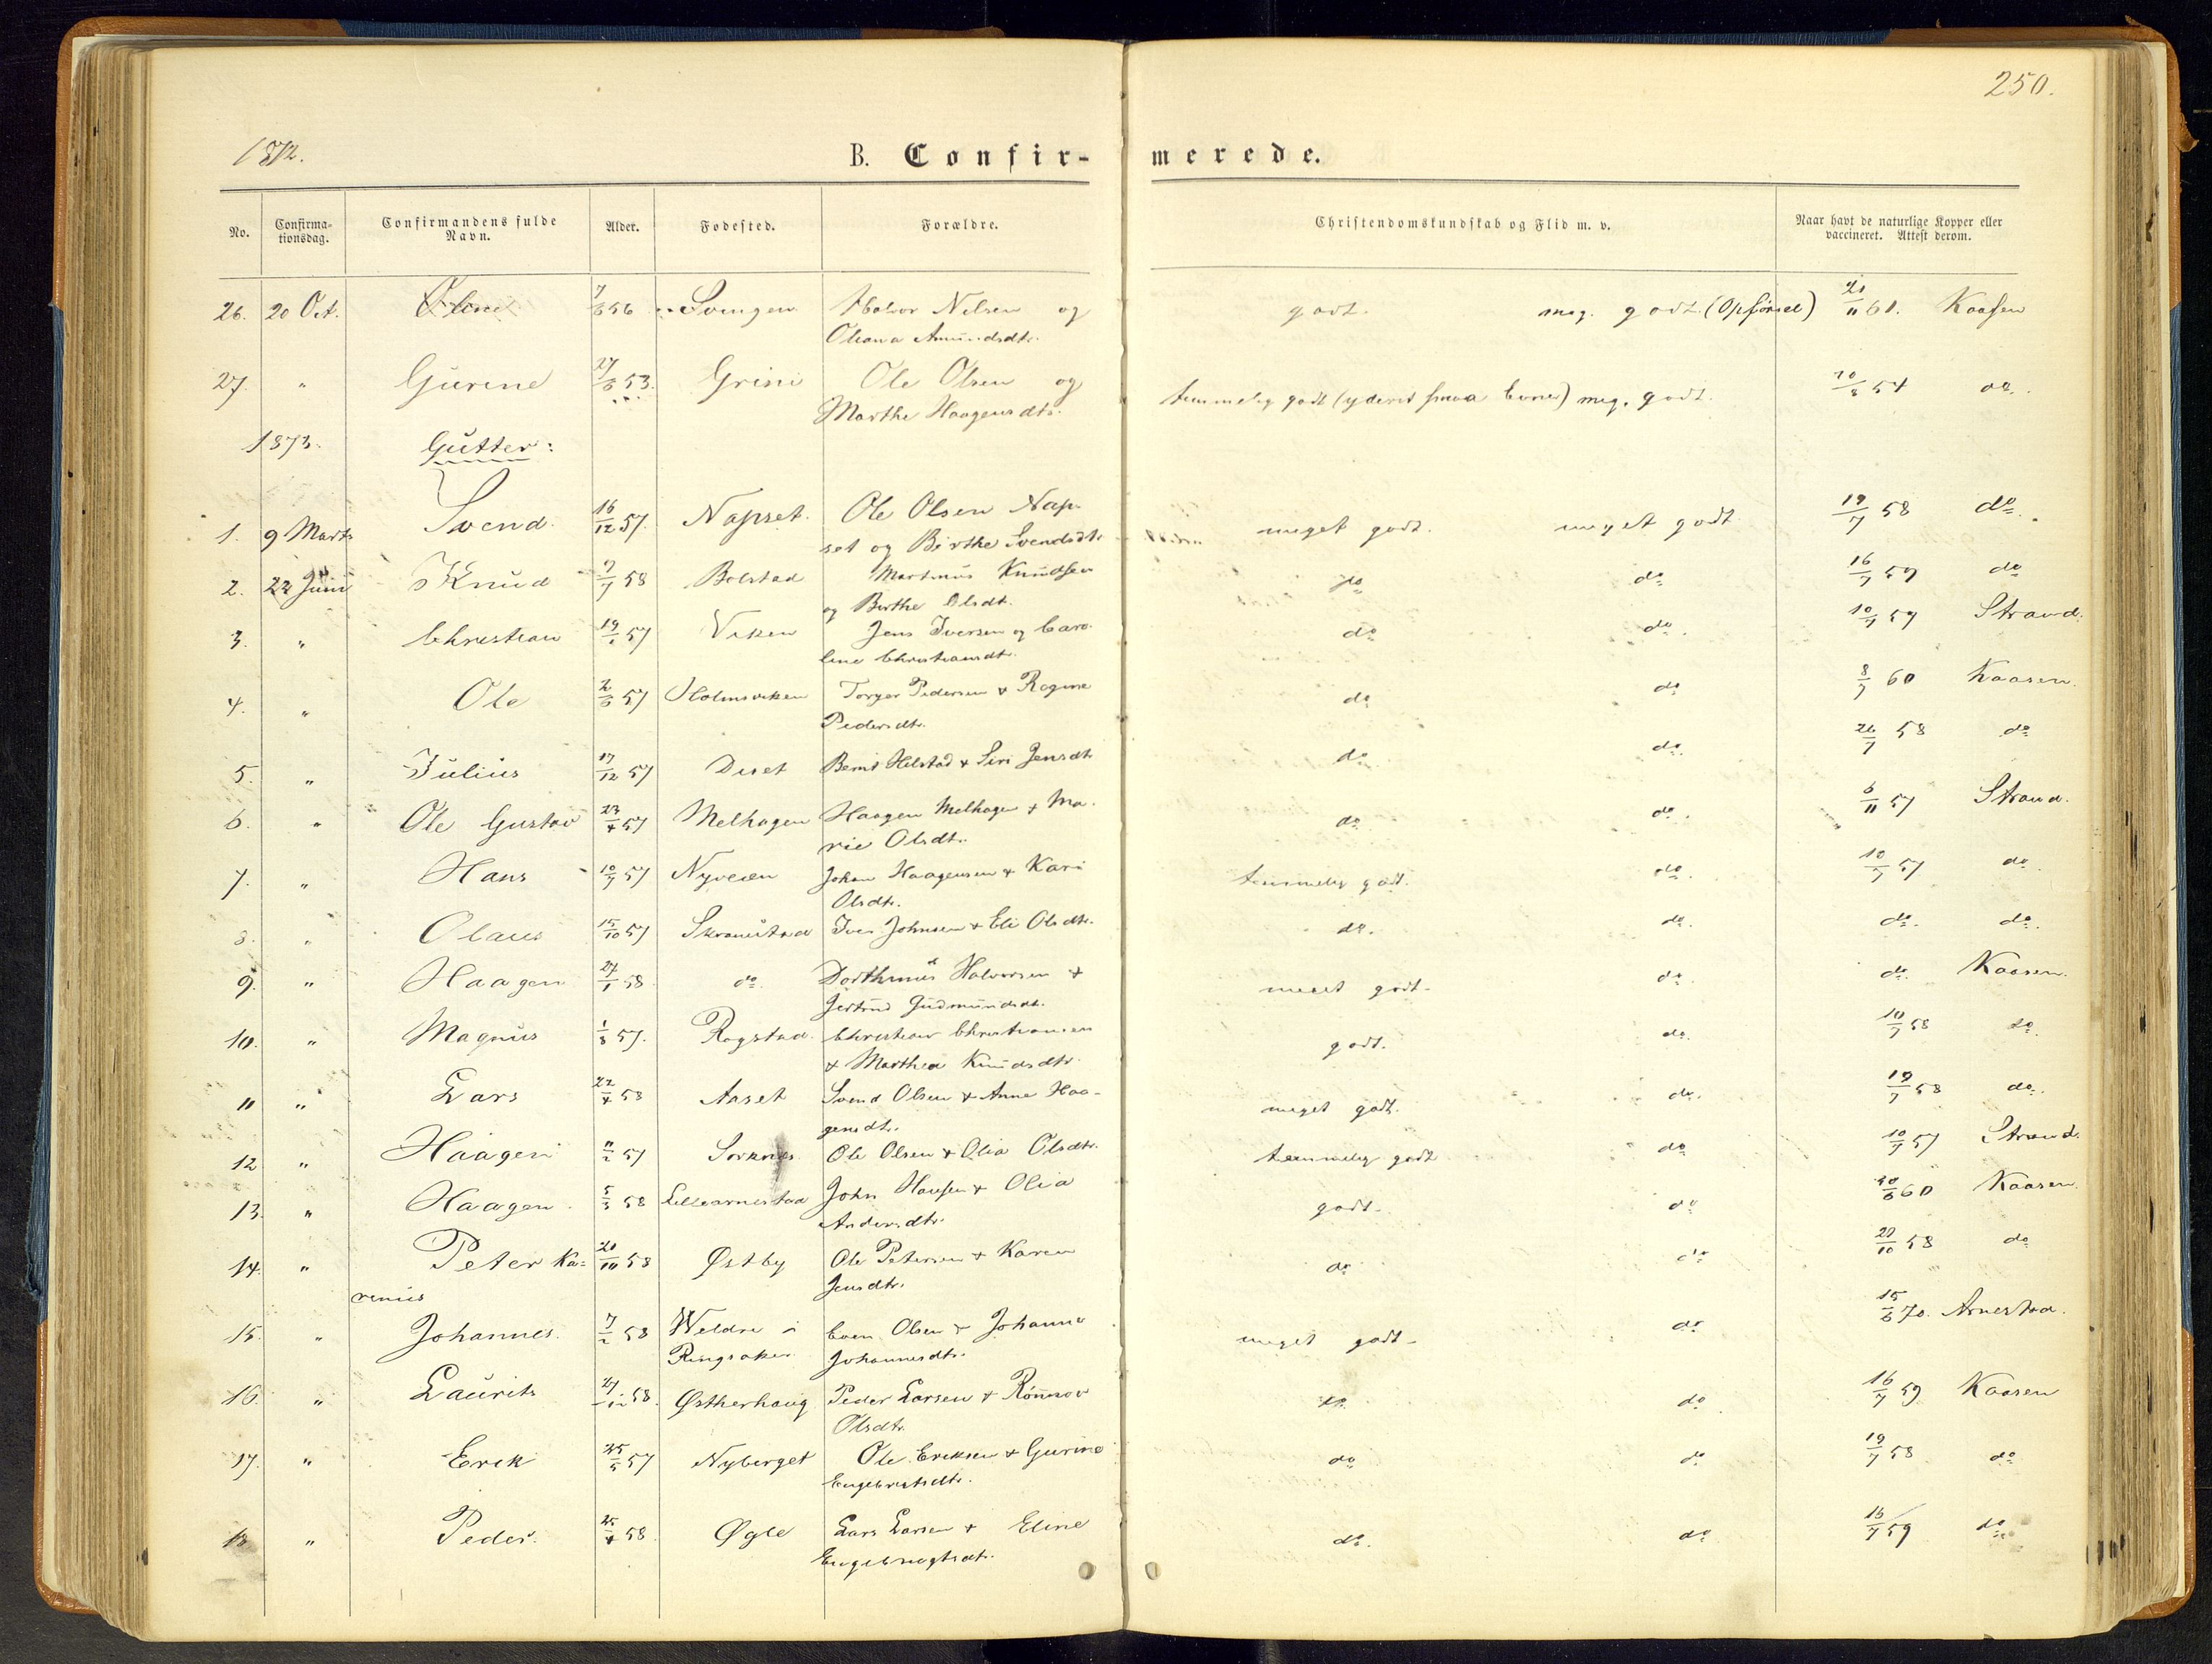 250.
1872.
B. Confir-merede.
No. Confirma-tionsdag. Confirmandens fulde Navn. Alder. Fødested. Forældre. Christendomskundskab og Flid m. v. Naar havt de naturlige Kopper eller vaccineret. Attest derom.
26. 20 Oct. Oline 7/6 56 Svingen Halvor Nilsen og godt. meg. godt. (Opførsel) 21/11 61. Kaasen
Oleana Amundsdtr.
27. " Gurine 27/8 53. Grini Ole Olsen og temmelig godt (yderst smaa Evner) meg. godt. 20/8 54 do.
Marthe Haagensdtr.
1873. Gutter:
1. 9 Marts Svend 16/12 57. Napset. Ole Olsen Nap- meget godt. meget godt 19/7 58 do.
set og Birthe Svendsdtr
2. 22 Juni Knud 7/7 58 Bolstad Martinus Knudsen do do 16/7 59 do
og Berthe Olsdt.
3. " Christian 19/1 57 Viken Jens Iversen og Caro- do do. 10/7 57 Strand.
line Christiansdtr.
4. " Ole 2/6 57 Holmsviken Torger Pedersen & Ragine do do 8/7 60 Kaasen.
Pedersdtr.
5. " Julius 17/12 57 Deset Bernt Helstad & Siri Jensdtr do. do. 26/7 58 do
6. " Ole Gustav 23/4 57 Melhagen Haagen Melhagen & Ma- do. do. 6/11 57 Strand.
rie Olsdtr.
7. " Hans 10/7 57 Nyveien Johan Haagensen & Kari temmelig godt. do. 10/7 57 do.
Olsdtr.
8. " Olaus 15/10 57 Skramstad Iver Johnsen & Eli Olsdtr. do. do. do. do.
9. " Haagen 27/1 58 do. Dorthinus Halvorsen & meget godt. do. do. Kaasen.
Jertrud Gudmundsdt.
10. " Magnus 1/8 57. Rogstad. Christian Christiansen godt. do. 10/7 58 do.
& Marthea Knudsdtr.
11 " Lars 22/4 58 Aaset Svend Olsen & Anne Haa- meget godt. do. 19/7 58 do.
gensdtr.
12 " Haagen 11/2 57 Sorknes Ole Olsen & Olia Olsdtr. temmelig godt do 10/7 57 Strand.
13. " Haagen 5/3 58 Lillearnestad John Hansen & Olia godt. do 20/6 60 Kaasen.
Andersdtr.
14. " Peter Ka- 20/10 58 Østby Ole Petersen & Karen do. do 27/10 58 do
renius Jensdtr.
15. " Johannes. 7/2 58 Weldre i Even Olsen & Johanne meget godt. do 15/6 70. Arnestad.
Ringsaker Johannesdtr.
16. " Laurits 58. Østherhaug Peder Larsen & Rønnov do. do 16/7 59 Kaasen
Olsdtr.
17. " Erik 25/5 57 Nyberget Ole Eriksen & Gurine do do 19/7 58 do
Engebretsdtr.
18 " Peder. 25/4 58. Øgle Lars Larsen & Eline do. do 16/7 59 do
Engebregtsdt.